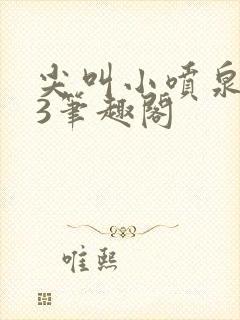 尖叫小喷泉
3筆趣閣
唯熙